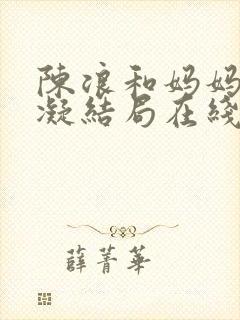 陳浪和妈妈
凝結局在綫
薛菁華